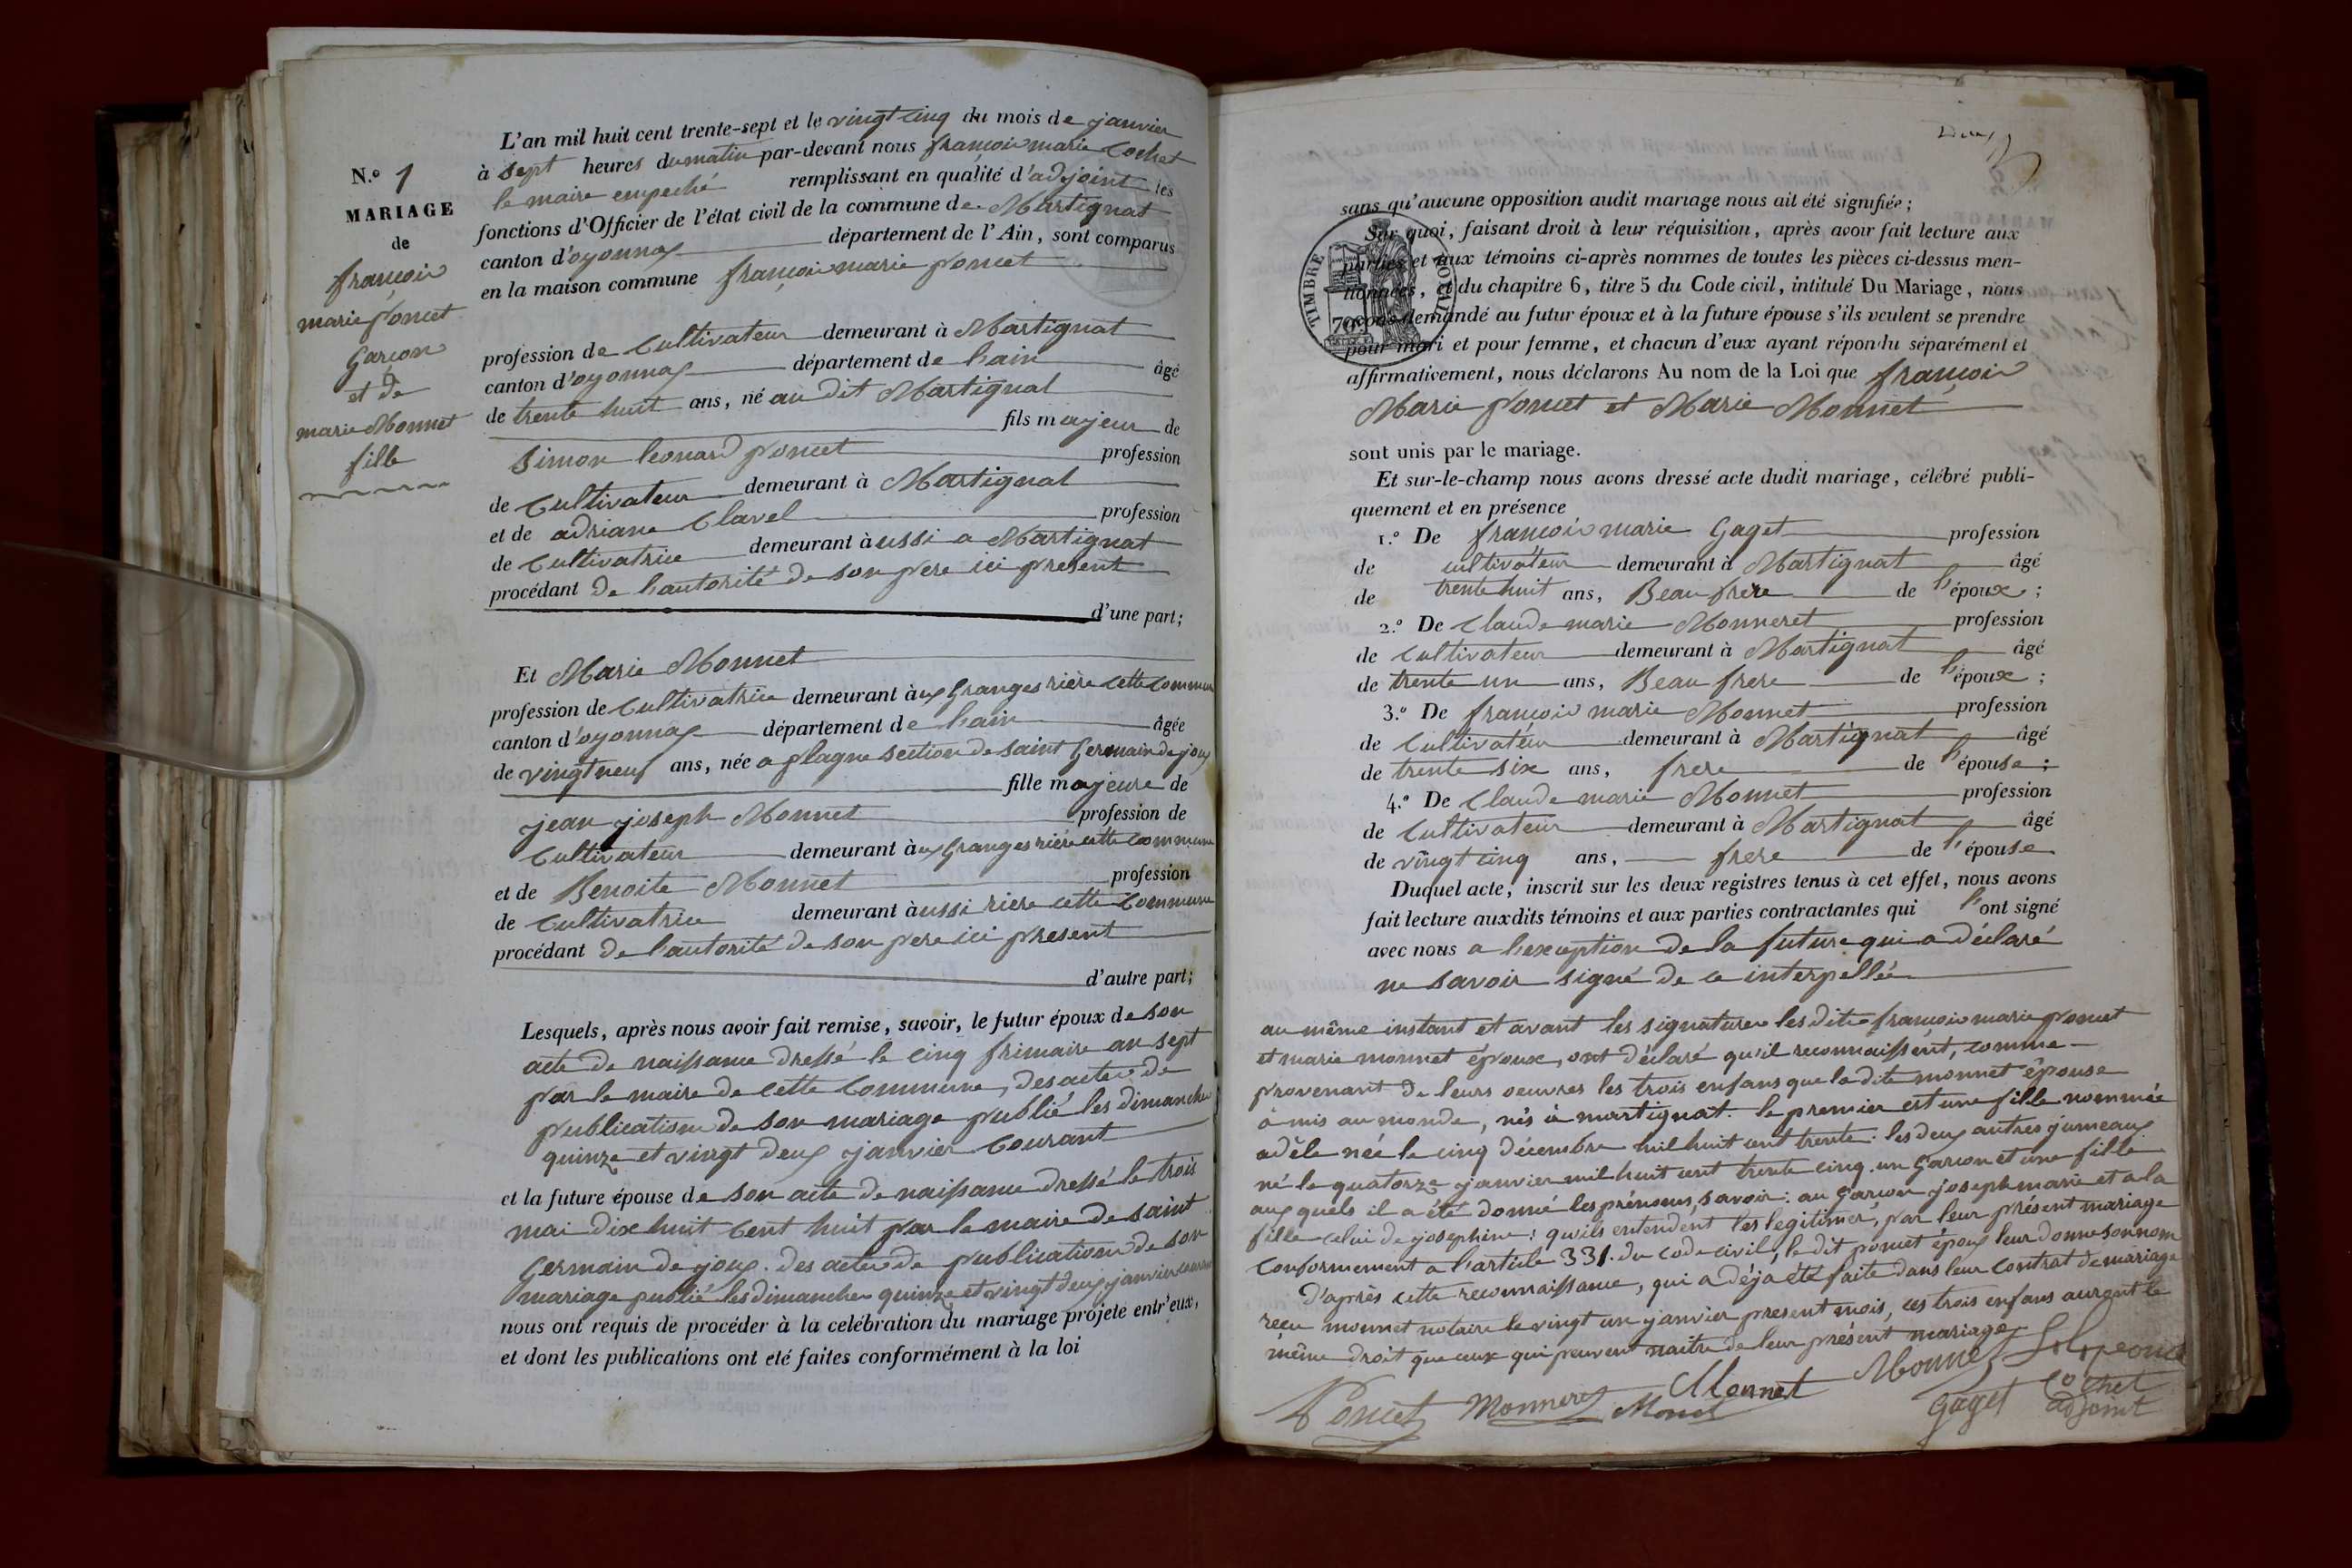 N.o 1
MARIAGE
de
françois
marie Poncet
Garçon
et de
marie Monnet
fille
L'an mil huit cent trente-sept et le vingt cinq du mois de janvier
à sept heures du matin par-devant nous françois marie Cochet
le maire empeché remplissant en qualité d'adjoint les
fonctions d'Officier de l'état civil de la commune de Martignat
canton d'oyonnax département de l'Ain, sont comparus
en la maison commune françois marie Poncet
profession de Cultivateur demeurant à Martignat
canton d'oyonnax département de l'ain âgé
de trente huit ans, né au dit Martignat
fils majeur de
Simon leonard Poncet profession
de Cultivateur demeurant à Martignat
et de adriane Clavel profession
de Cultivatrice demeurant àussi a Martignat
procédant de l'autorité de son pere ici present
d'une part;
Et Marie Monnet
profession de Cultivatrice demeurant àux Granges rière cette commune
canton d'oyonnax département de l'ain âgée
de vingt neuf ans, née a plagne section de saint Germain de joux
fille majeure de
jean joseph Monnet profession de
Cultivateur demeurant àux Granges rière cette commune
et de Benoite Monnet profession
de Cultivatrice demeurant àussi riere cette Commune
procédant de l'autorité de son pere ici present
d'autre part;
Lesquels, après nous avoir fait remise, savoir, le futur époux de son
acte de naissance dressé le cinq frimaire an sept
par le maire de cette Commune, des actes de
publication de son mariage publié les dimanches
quinze et vingt deux janvier Courant
et la future épouse de son acte de naissance dressé le trois
mai dix huit Cent huit par le maire de saint
Germain de joux. des actes de publication de son
mariage publié les dimanches quinze et vingt deux janvier courant
nous ont requis de procéder à la celébration du mariage projete entr'eux,
et dont les publications ont eté faites conformément à la loi
sans qu'aucune opposition audit mariage nous ait été signifiée;
Sur quoi, faisant droit à leur réquisition, après avoir fait lecture aux
parties et aux témoins ci-après nommes de toutes les pièces ci-dessus men-
tionnées, et du chapitre 6, titre 5 du Code civil, intitulé Du Mariage, nous
avons demandé au futur époux et à la future épouse s'ils veulent se prendre
pour mari et pour femme, et chacun d'eux ayant répondu séparément et
affirmativement, nous déclarons Au nom de la Loi que françois
Marie Poncet et Marie Monnet
sont unis par le mariage.
TIMBRE ROYAL
70
Et sur-le-champ nous avons dressé acte dudit mariage, célébré publi-
quement et en présence
1.o De francois marie Gaget profession
de cultivateur demeurant à Martignat âgé
de trente huit ans, Beau frere de l'époux;
2.o De Claude marie Monneret profession
de Cultivateur demeurant à Martignat âgé
de trente un ans, Beau frere de l'époux;
3.o De francois marie Monnet profession
de Cultivateur demeurant à Martignat âgé
de trente six ans, frere de l'épouse;
4.o De Claude marie Monnet profession
de Cultivateur demeurant à Martignat âgé
de vingt cinq ans, frere de l'épouse
Duquel acte, inscrit sur les deux registres tenus à cet effet, nous avons
fait lecture auxdits témoins et aux parties contractantes qui l'ont signé
avec nous a l'exception de la future qui a déclaré
ne savoir signé de ce interpellée
au même instant et avant les signatures les dits françois marie Poncet
et marie monnet époux, ont déclaré qu'il reconnaissent, comme
provenant de leurs oeuvres les trois enfans que la dite monnet épouse
à mis au monde, nés à martignat. le premier est une fille nommée
adèle née le cinq décembre mil huit cent trente: les deux autres jumeaux
né le quatorze janvier mil huit cent trente cinq. un Garçon et une fille
aux quels il a été donné les prénoms, savoir: au Garçon joseph marie et a la
fille celui de josephine: qu'ils entendent les legitimer, par leur présent mariage
Conformement a l'article 331. du code civil, le dit poncet époux leur donne son nom
D'après cette reconnaissance, qui a déja été faite dans leur Contrat de mariage
reçu monnet notaire le vingt un janvier present mois, ces trois enfans auront le
même droit que ceux qui peuvent naitre de leur présent mariage
Monnet
Poncet Monneret Monnet Monnet Gaget Cochet
adjoint